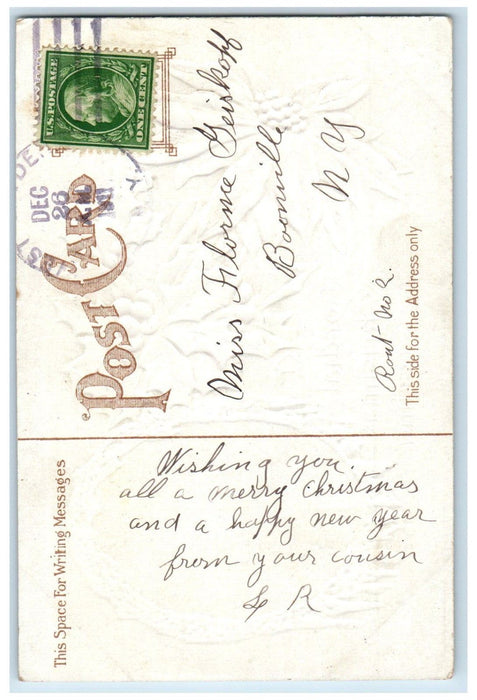 POST CARD
U.S. POSTAGE
ONE CENT
DEC
26
Miss Florine Geiskopf
Boonville
N Y
Rout No 2.
This side for the Address only
This Space For Writing Messages
Wishing you
all a merry Christmas
and a happy new year
from your cousin
L R